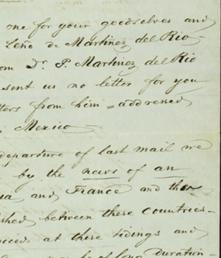 one for your goodselves and
Leño de Martinez del Rio
om Dr. P. Martinez del Rio
sent us no letter for you
tters from him addressed
Mexico
departure of last mail we
by the news of an
and France and
shed between these countries.
at these tidings and
duration